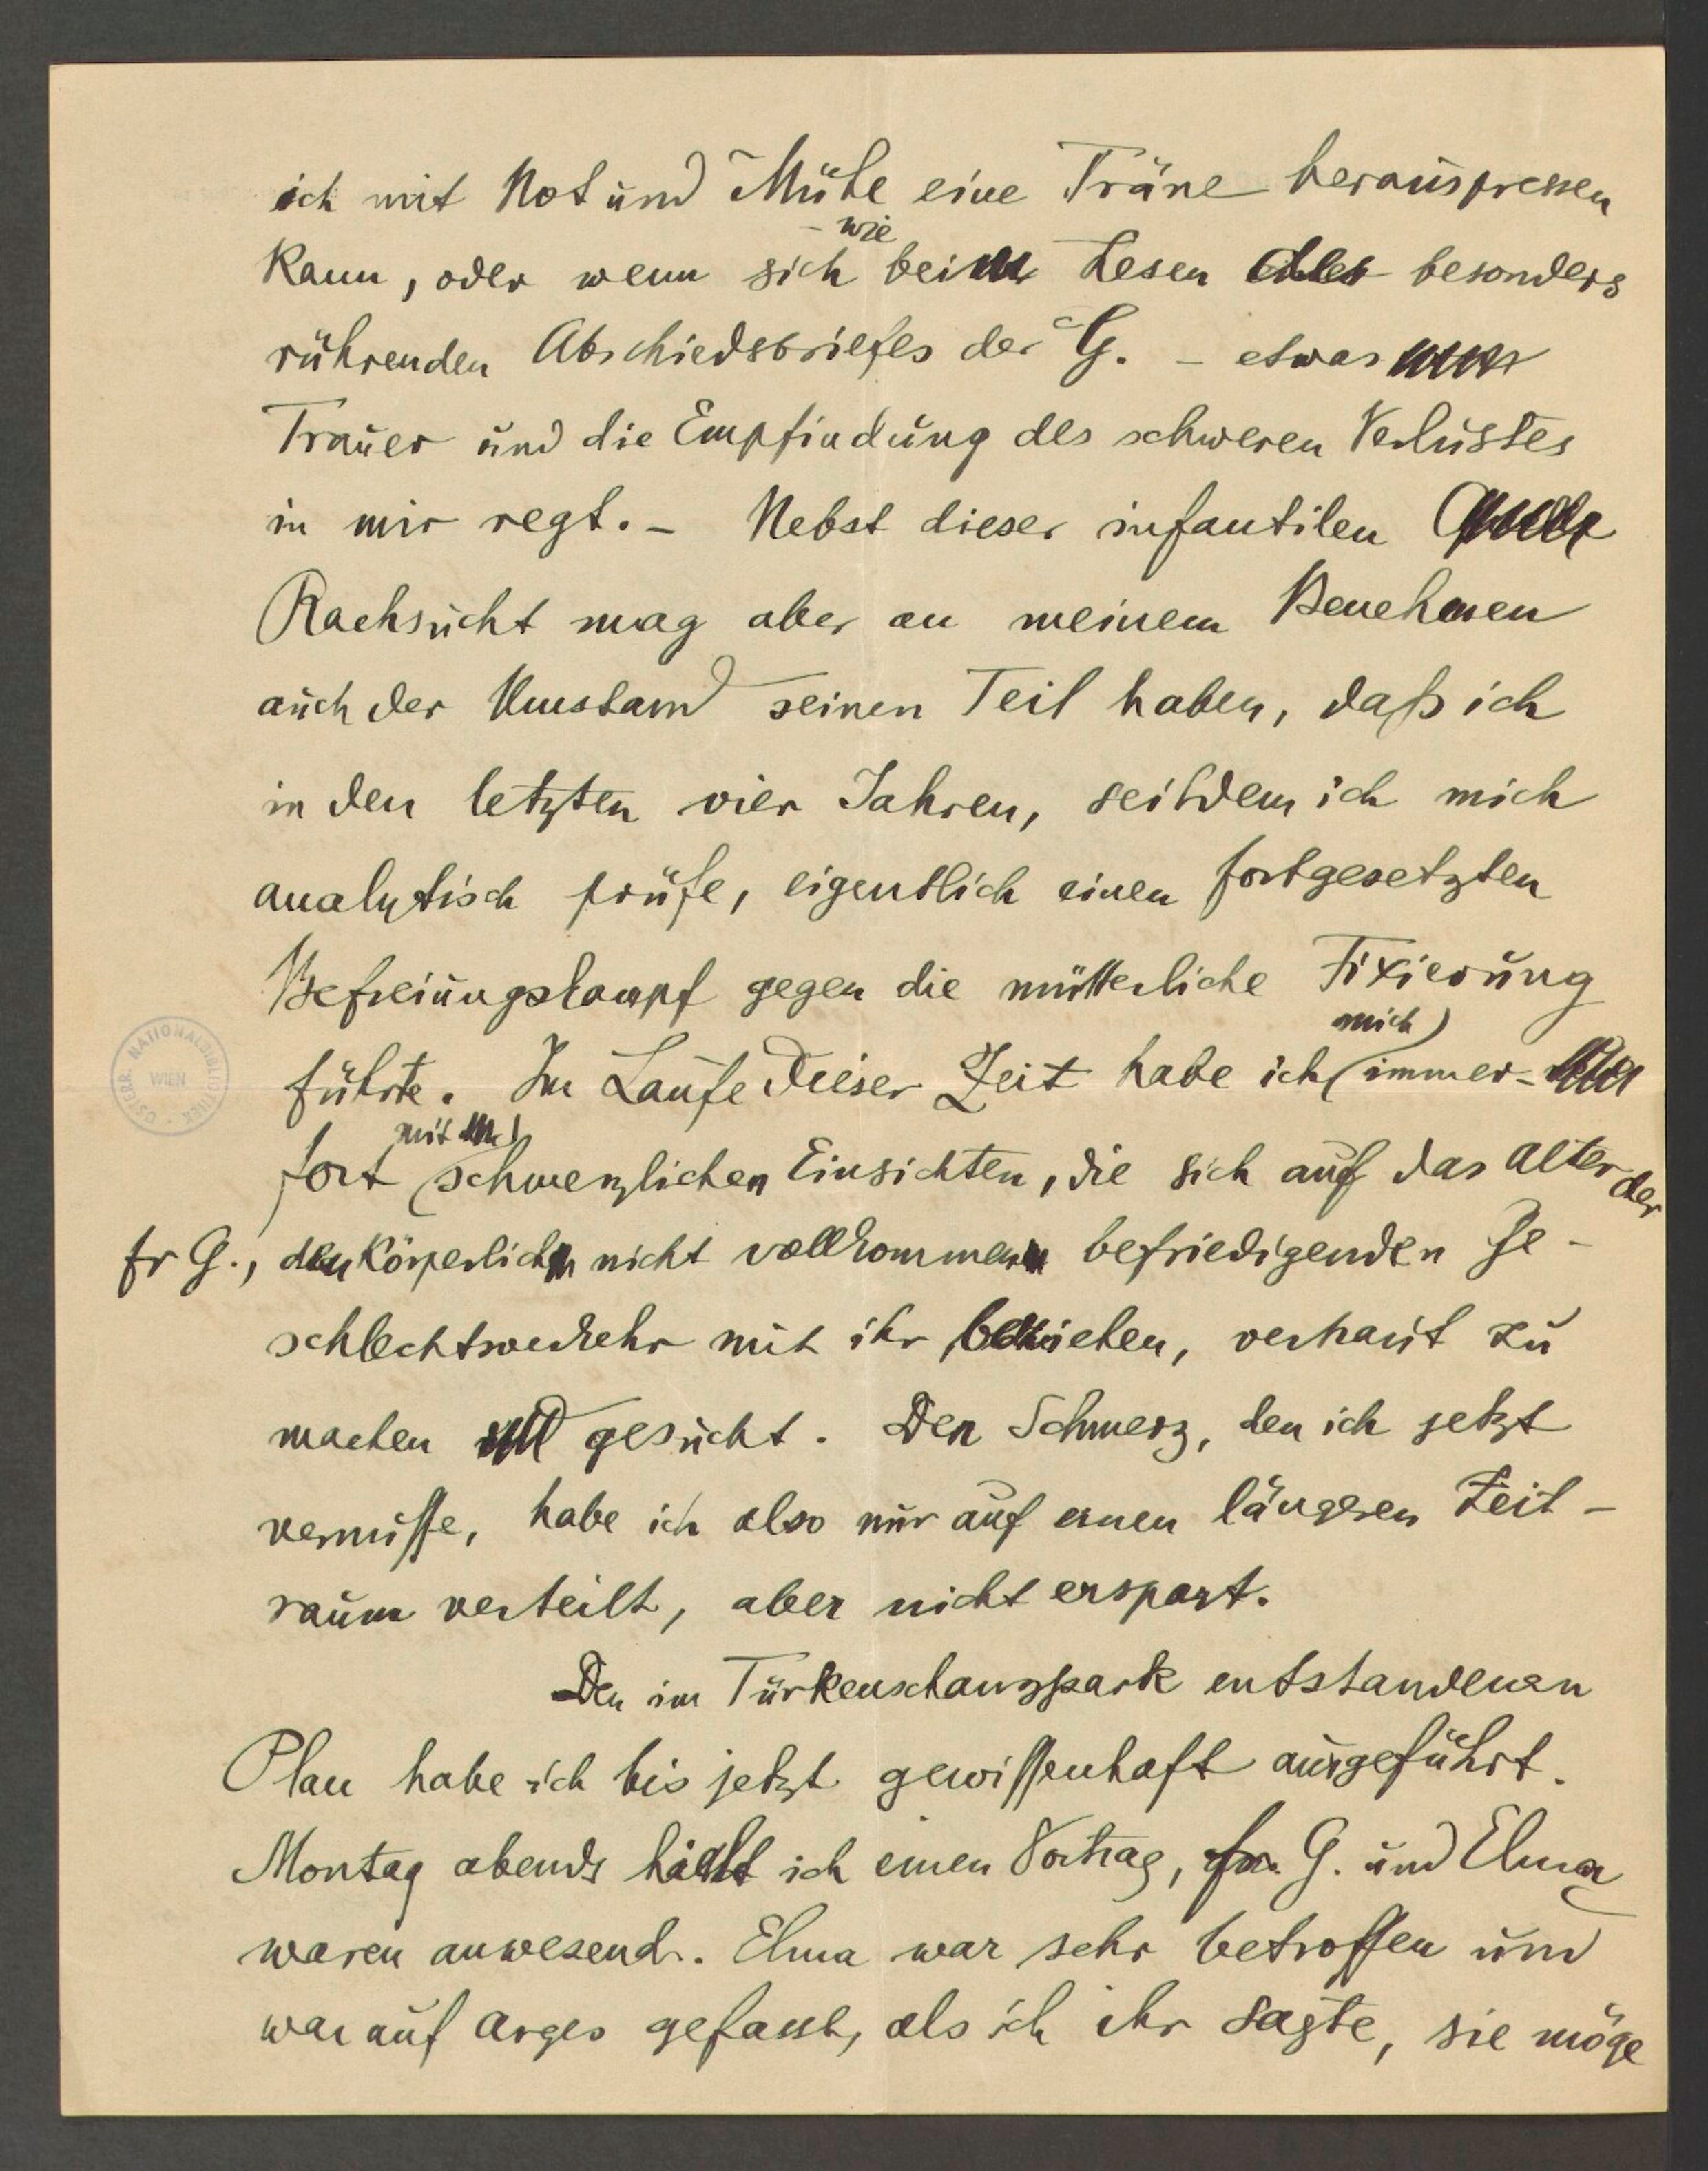 ich mit Not und Mühe eine Träne herauspressen
kann, oder wenn sich – wie beim Lesen eines besonders
rührenden Abschiedsbriefes der G. – etwas
Trauer und die Empfindung des schweren Verlustes
in mir regt. – Nebst dieser infantilen
Rachsucht mag aber an meinem Benehmen
auch der Umstand seinen Teil haben, daß ich
in den letzten vier Jahren, seitdem ich mich
analytisch prüfe, eigentlich einen fortgesetzten
Befreiungskampf gegen die mütterliche Fixierung
führte. Im Laufe dieser Zeit habe ich mich immer-
fort mit schmerzlichen Einsichten, die sich auf das Alter der
Fr G., den körperlich nicht vollkommen befriedigenden Ge-
schlechtsverkehr mit ihr beziehen, vertraut zu
machen gesucht. Den Schmerz, den ich jetzt
vermisse, habe ich also nur auf einen längeren Zeit-
raum verteilt, aber nicht erspart.
Den im Türkenschanzpark entstandenen
Plan habe ich bis jetzt gewissenhaft ausgeführt.
Montag abends hielt ich einen Vortrag, fr. G. und Elma
waren anwesend. Elma war sehr betroffen und
war auf arges gefasst, als ich ihr sagte, sie möge
ÖSTERR. NATIONALBIBLIOTHEK
WIEN